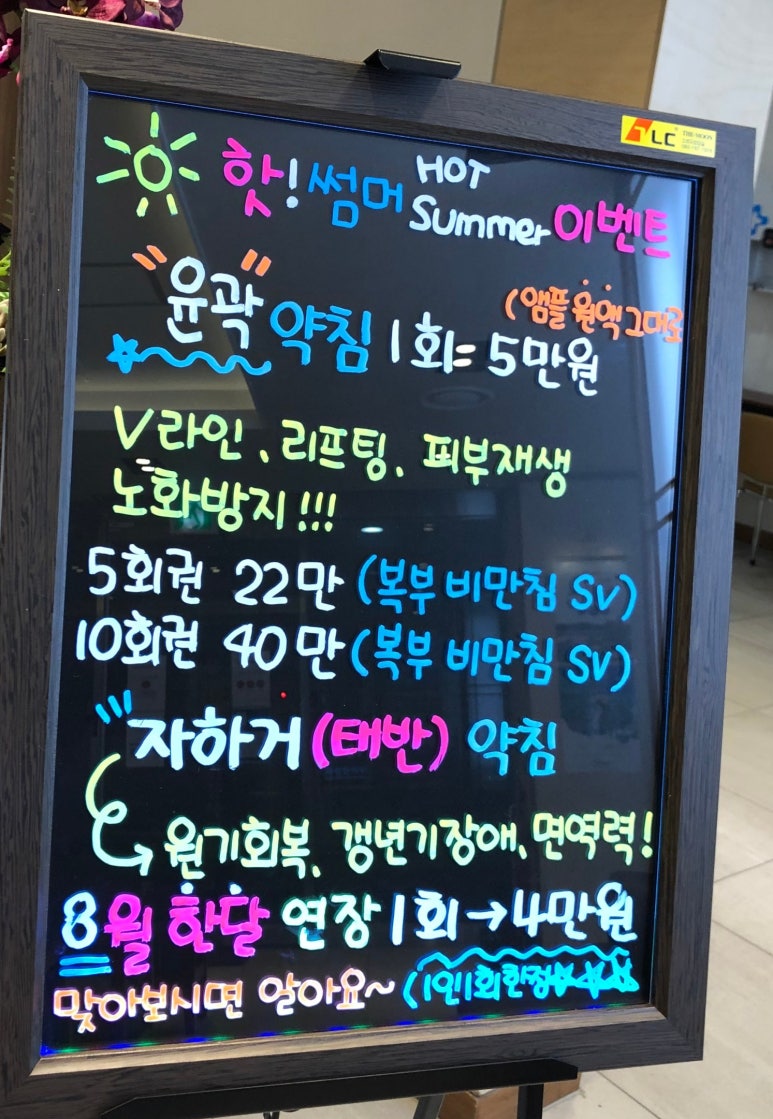 핫! 썸머 HOT Summer 이벤트
"윤곽" 약침 1회= 5만원 (앰플 원액 그대로
V라인, 리프팅, 피부재생
노화방지!!!
5회권 22만 (복부 비만침 SV)
10회권 40만 (복부 비만침 SV)
자하거 (태반) 약침
원기회복, 갱년기장애, 면역력!
8월 한달 연장 1회→4만원
맞아보시면 알아요~ (1인1회한정
TLC THE MOON